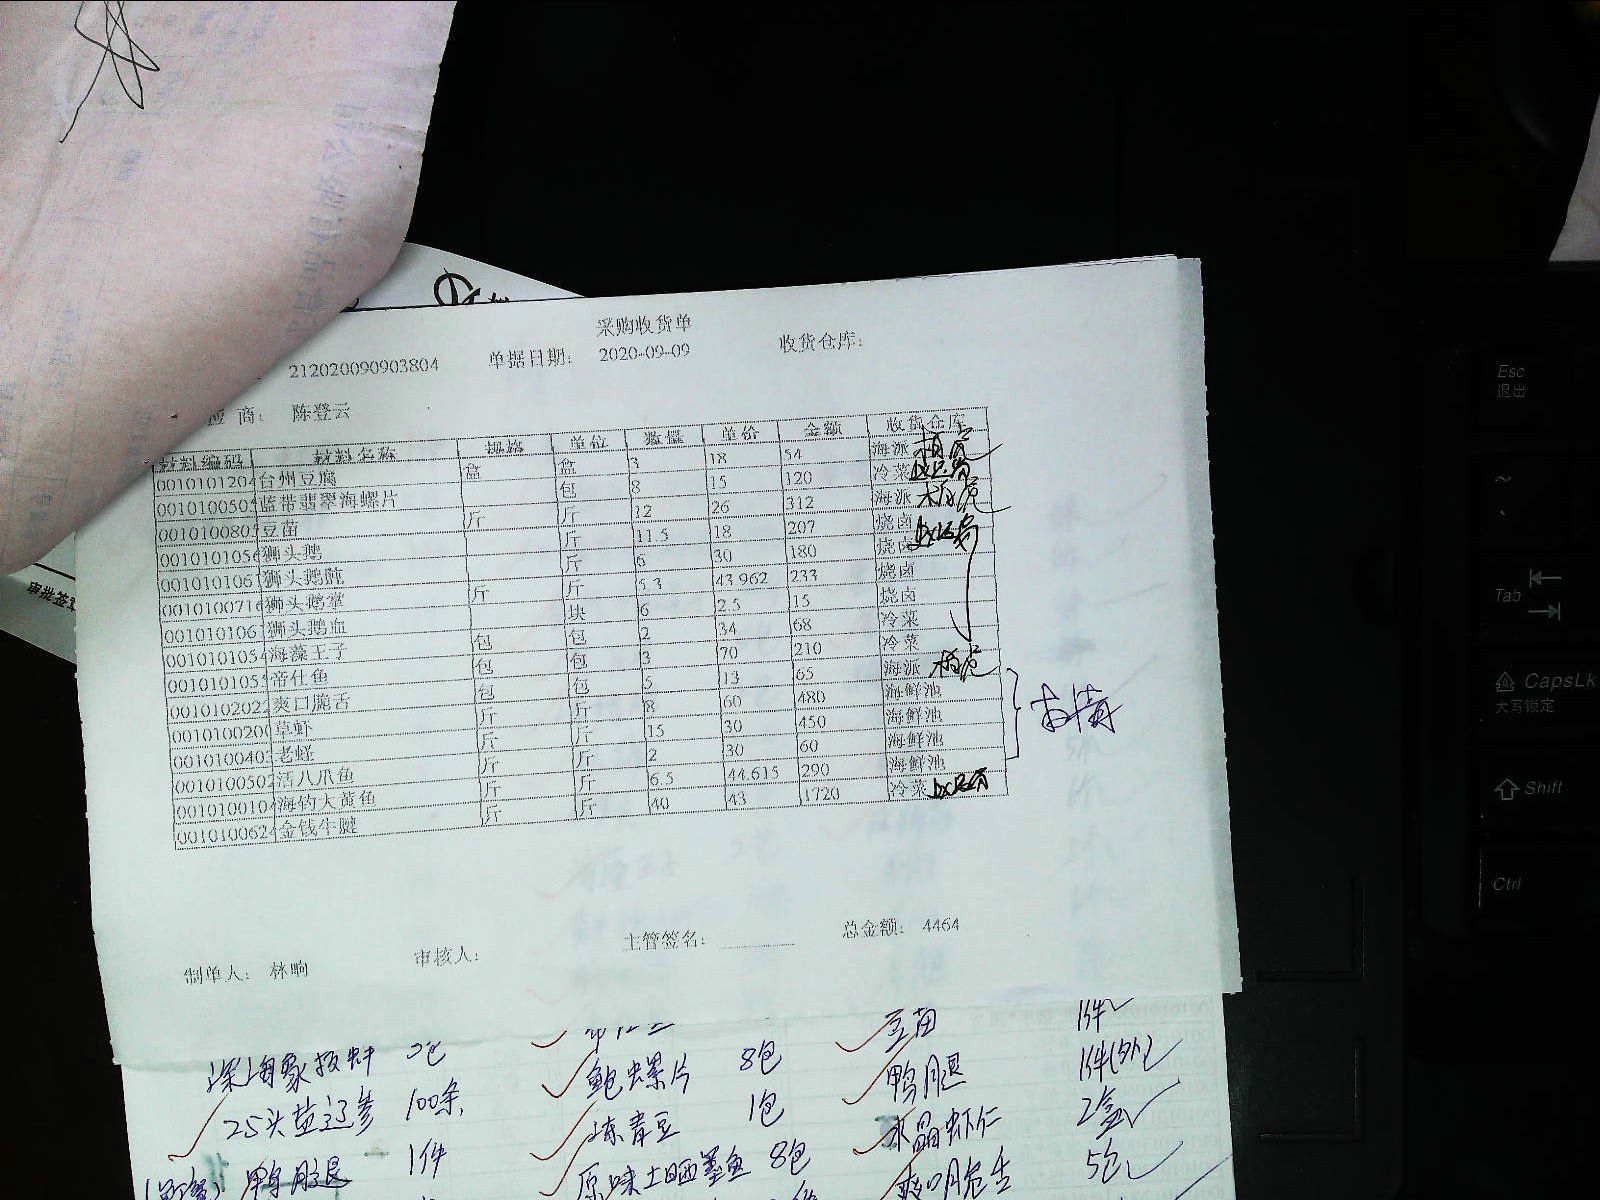 采购收货单
212020090903804 单据日期： 2020-09-09 收货仓库：
应 商： 陈登云
材料编码 材料名称 规格 单位 数量 单价 金额 收货仓库
0010101204 台州豆腐 盒 盒 3 18 54 海派
001010050 蓝带翡翠海螺片 包 8 15 120 冷菜
001010080 豆苗 斤 斤 12 26 312 海派
001010105 狮头鹅 斤 11.5 18 207 烧卤
001010106 狮头鹅肫 斤 6 30 180 烧卤
001010071 狮头鹅掌 斤 斤 5.3 43.962 233 烧卤
001010106 狮头鹅血 块 6 2.5 15 烧卤
001010105 海藻王子 包 包 2 34 68 冷菜
001010105 帝仕鱼 包 包 3 70 210 冷菜
001010202 爽口脆舌 包 包 5 13 65 海派
001010020 草虾 斤 斤 8 60 480 海鲜池
001010040 老蛏 斤 斤 15 30 450 海鲜池
001010050 活八爪鱼 斤 斤 2 30 60 海鲜池
001010010 海钓大黄鱼 斤 斤 6.5 44.615 290 海鲜池
001010062 金钱牛腱 斤 斤 40 43 1720 冷菜
制单人： 林晌 审核人： 主管签名： 总金额： 4464
豆苗 1件
鲍螺片 8包 鸭腿 1件(外)
25头 100条 冻青豆 1包 水晶虾仁 2盒
鸭腿 1件 原味土晒墨鱼 8包 爽口脆舌 5包
审批签
Esc
退出
~
Tab
CapsLk
大写锁定
Shift
Ctrl